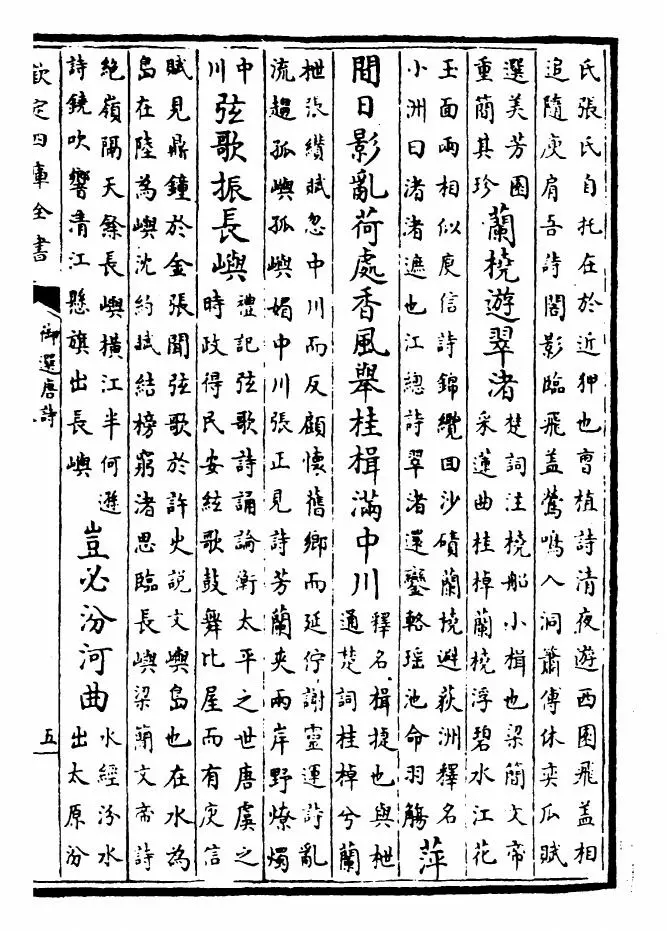 氏張氏自托在於近狎也曹植詩清夜遊西園飛盖相
追隨庾肩吾詩閣影臨飛盖鶯鳴入洞簫傅休奕瓜賦
選美芳園
重簡其珍
蘭橈遊翠渚
楚詞注橈船小楫也梁簡文帝
采蓮曲桂棹蘭橈浮碧水江花
玉面兩相似庾信詩錦纜回沙磧蘭橈避荻洲釋名
小洲曰渚渚遮也江總詩翠渚還鑾輅瑶池命羽觴
萍
間日影亂荷處香風舉桂楫滿中川
釋名楫捷也與枻
通楚詞桂棹兮蘭
枻張纘賦忽中川而反顧懷舊鄉而延佇謝靈運詩亂
流趨孤嶼孤嶼媚中川張正見詩芳蘭夾兩岸野燎燭
中
川
弦歌振長嶼
禮記弦歌詩誦論衡太平之世唐虞之
時政得民安絃歌鼓舞比屋而有庾信
賦見鼎鐘於金張聞弦歌於許史説文嶼島也在水為
島在陸為嶼沈約賦結榜窮渚思臨長嶼梁簡文帝詩
絶嶺隔天餘長嶼横江半何遜
詩鐃吹響清江懸旗出長嶼
豈必汾河曲
水經汾水
出太原汾
欽定四庫全書
御選唐詩
五